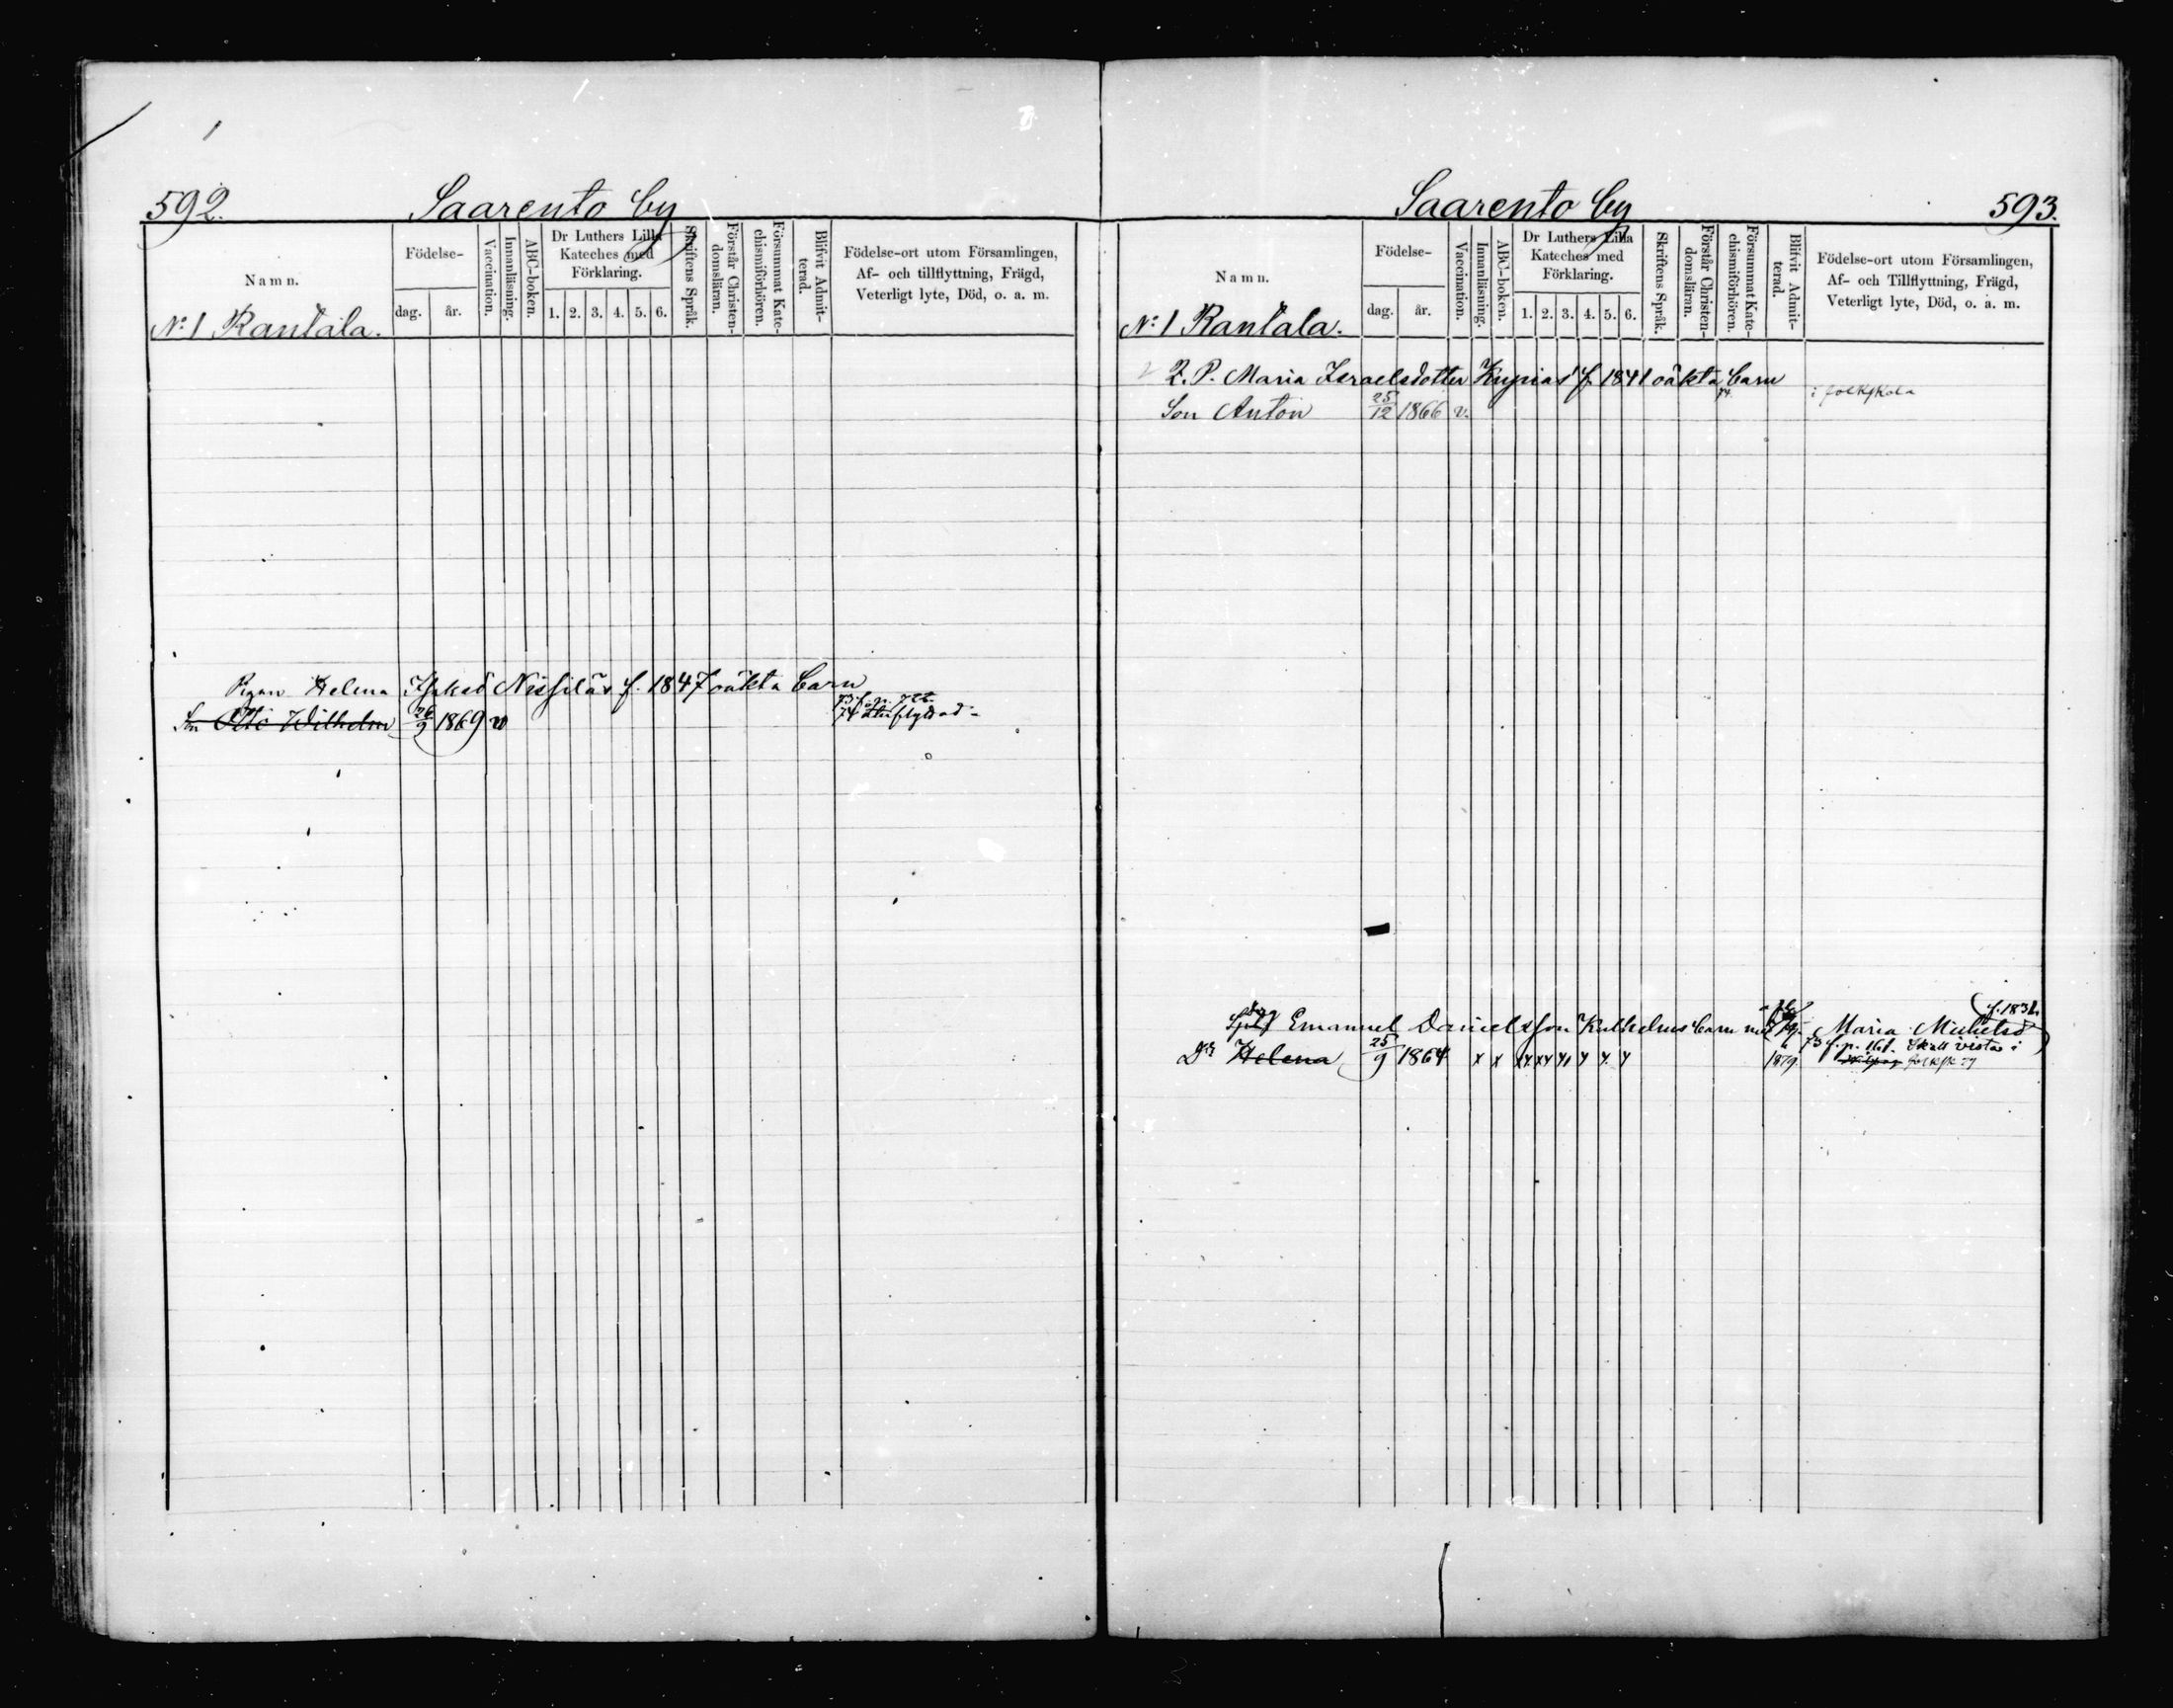 592. Saarento by
Namn.
Födelse-
dag. år.
Vaccination.
Innanläsning.
ABC-boken.
Dr Luthers Lilla Kateches med Förklaring.
1. 2. 3. 4. 5. 6.
Skriftens Språk.
Förstår Christendomsläran.
Försummat Katechismiförhören.
Blifvit Admitterad.
Födelse-ort utom Församlingen,
Af- och tillflyttning, Frägd,
Veterligt lyte, Död, o. a. m.
No 1 Rantala.
Pgan Helena Isaksd Nissilas f. 1847 oäkta barn
Son Otto Wilhelm 26/9 1869 v
Saarento by 593.
Namn.
Födelse-
dag. år.
Vaccination.
Innanläsning.
ABC-boken.
Dr Luthers Lilla Kateches med Förklaring.
1. 2. 3. 4. 5. 6.
Skriftens Språk.
Förstår Christendomsläran.
Försummat Katechismiförhören.
Blifvit Admitterad.
Födelse-ort utom Församlingen,
Af- och Tillflyttning, Frägd,
Veterligt lyte, Död, o. a. m.
No 1 Rantala.
Q. P. Maria Israelsdotter Kupias f. 1841 oäkta barn
Son Anton 25/12 1866 v. i folkskola
Emanuel Danielsson barn med Maria Michelsd
Dr Helena 25/9 1864 x x 1879